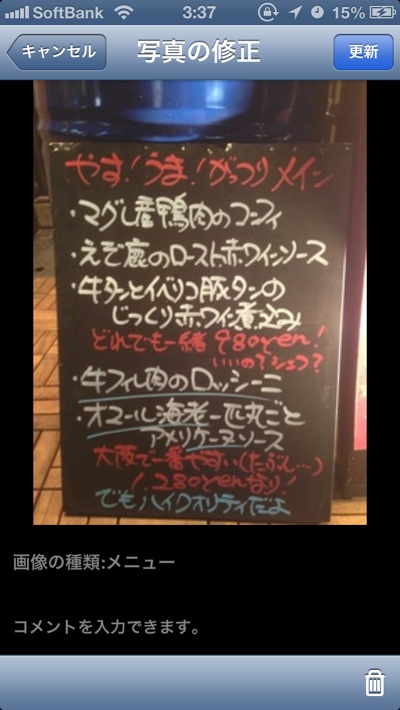 SoftBank 3:37 15%
キャンセル 写真の修正 更新
やす!うま!がっつりメイン
・マグレ産鴨肉のコンフィ
・えぞ鹿のロースト赤ワインソース
・牛タンとイベリコ豚タンの
じっくり赤ワイン煮込み
どれでも一緒 980yen!
いいの?シェフ?
・牛フィレ肉のロッシーニ
・オマール海老一匹丸ごと
アメリケーヌソース
大阪で一番やすい(たぶん…)
1,280yenなり!
でもハイクオリティだよ
画像の種類:メニュー
コメントを入力できます。